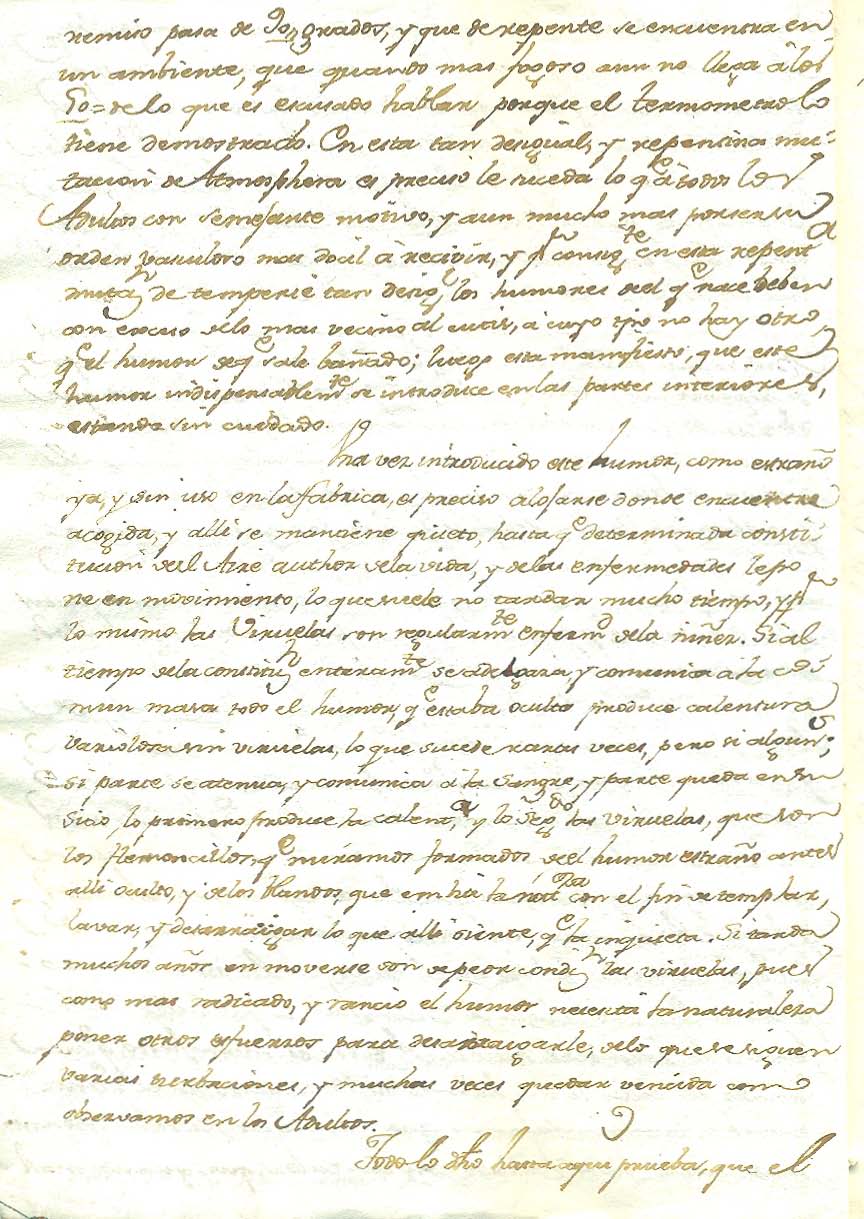 remiso pasa de 90, grados, y que de repente se encuentra en
un ambiente, que quando mas fogoso aun no llega à los
50 = de lo que es escusado hablar porque el termometro lo
tiene demostrado. En esta tan desigual, y repentina mu-
tacion de Atmosphera es preciso le suceda lo q.e à todos los
Adultos con semejante motivo, y aun mucho mas por ser su
orden vasculoso mas docil à recivir, y pr. consig.te en esta repent.a
mutaz.n de temperie tan desig.l los humores del q.e nace deben
con exceso de lo mas vecino al cutis, à cuyo tpo no hay otro,
q.e el humor de q.e sale bañado; luego esta manifiesto, que este
humor indispensablem.te se introduce en las partes interiores,
estando sin cuidado.
Una vez introducido este humor, como estraño
ya, y sin uso en la fabrica, es preciso alojarse donde encuentre
acogida, y alli se mantiene quieto, hasta q.e determinada consti-
tucion del Aire author de la vida, y de las enfermedades le po
ne en movimiento, lo que suele no tardar mucho tiempo, y pr.
lo mismo las Viruelas son regularm.te enferm.d de la niñez. Si al
tiempo de la constituz.n enteram.te se adelgaza, y comunica à la co-
mun masa todo el humor, q.e estaba oculto produce calentura
variolosa sin viruelas, lo que sucede raras veces, pero si algun.s;
si parte se atenua, y comunica à la sangre, y parte queda en su
sitio, lo primero produce la calent.a, y lo seg.do las viruelas, que son
los flemoncillos, q.e miramos formados del humor estraño antes
alli oculto, y de los blandos, que embia la nat.za con el fin de templar,
lavar, y desarraigar lo que alli siente, q.e la inquieta. Si tarda
muchos años en moverse son de peor condiz.n las viruelas, pues
como mas radicado, y rancio el humor necesita la naturaleza
poner otros esfuerzos para desarraigarle, de lo que se siguen
varias turbaciones, y muchas veces quedar vencida como
observamos en los Adultos.
Todo lo dho hasta aqui prueba, que el